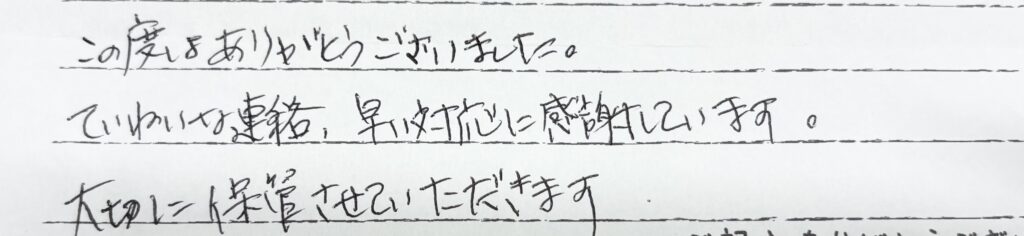 この度はありがとうございました。
ていねいな連絡、早い対応に感謝しています。
大切に保管させていただきます